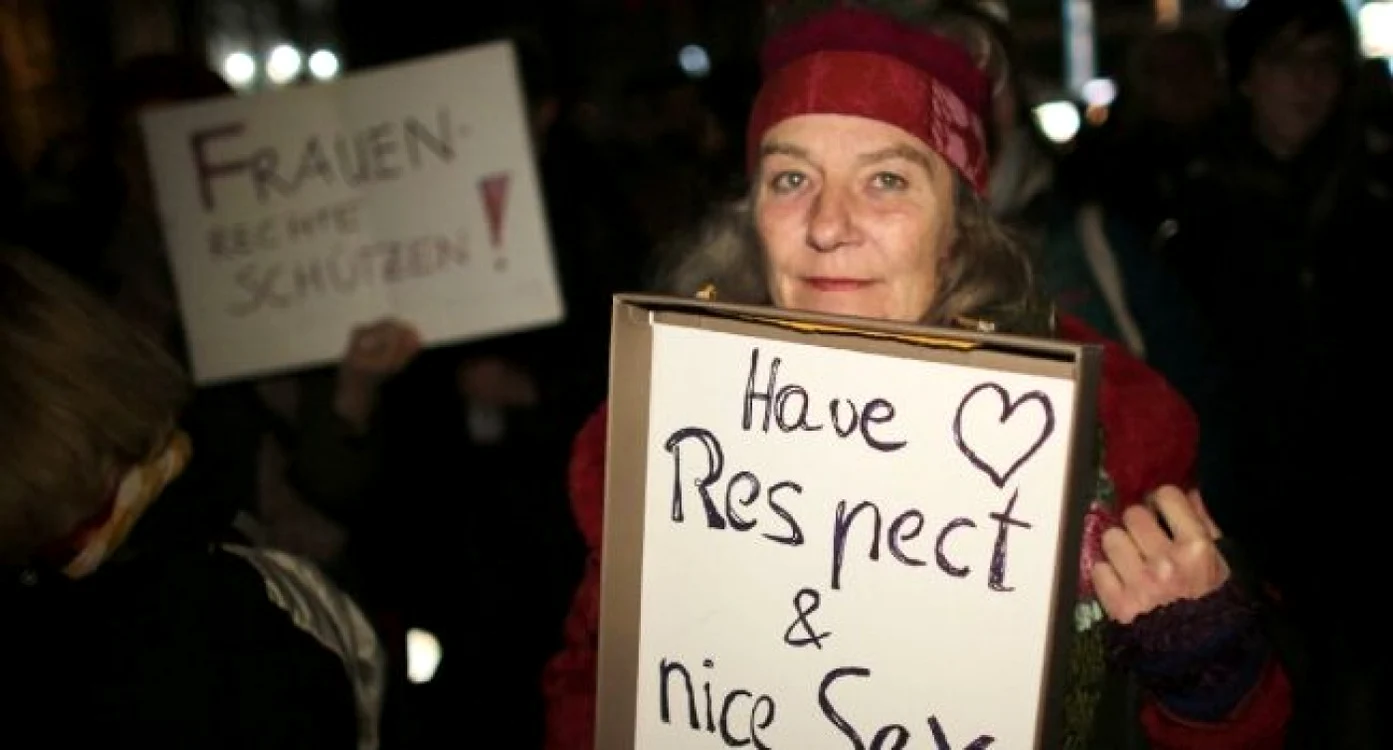 FRAUEN-
RECHTE
SCHÜTZEN!
Have
Respect
&
nice Sex